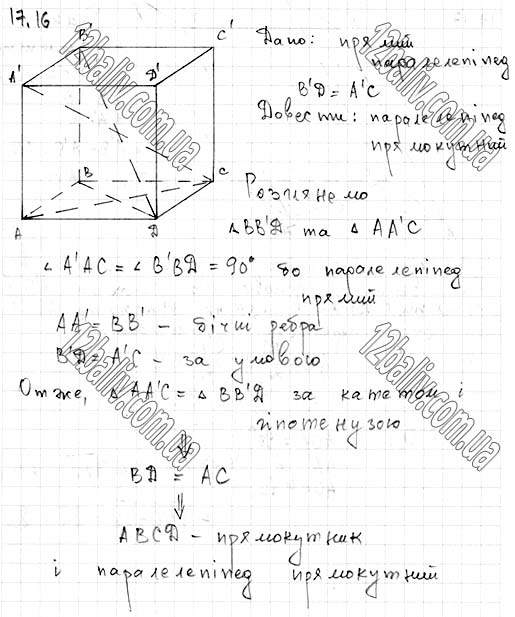 17.16
B' C'
A' Д'
B C
A Д
Дано: прямий
паралелепіпед
B'Д = A'C
Довести: паралелепіпед
прямокутний
Розглянемо
△BB'Д та △AA'C
∠A'AC = ∠B'BД = 90° бо паралелепіпед
прямий
AA' = BB' - бічні ребра
B'Д = A'C - за умовою
Отже, △AA'C = △BB'Д за катетом і
гіпотенузою
⇓
BД = AC
⇓
ABCД - прямокутник
і паралелепіпед прямокутний
12baliv.com.ua
12baliv.com.ua
12baliv.com.ua
12baliv.com.ua